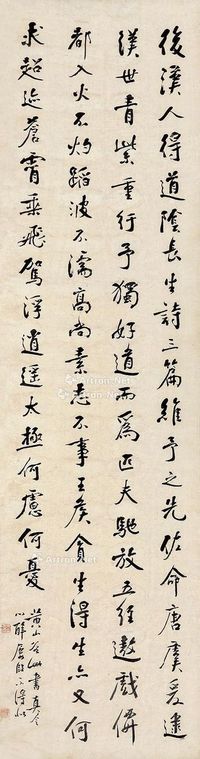 後漢人得道陰長生詩三篇維予之先佐命唐虞爰逮
漢世青紫重行予獨好道而為匹夫馳放五經遨戲倂
都入火不灼蹈波不濡高尚素志不事王矦貪生得生亦又何
求超迹蒼霄乘飛駕浮逍遥太極何慮何憂
黄山谷此書真令